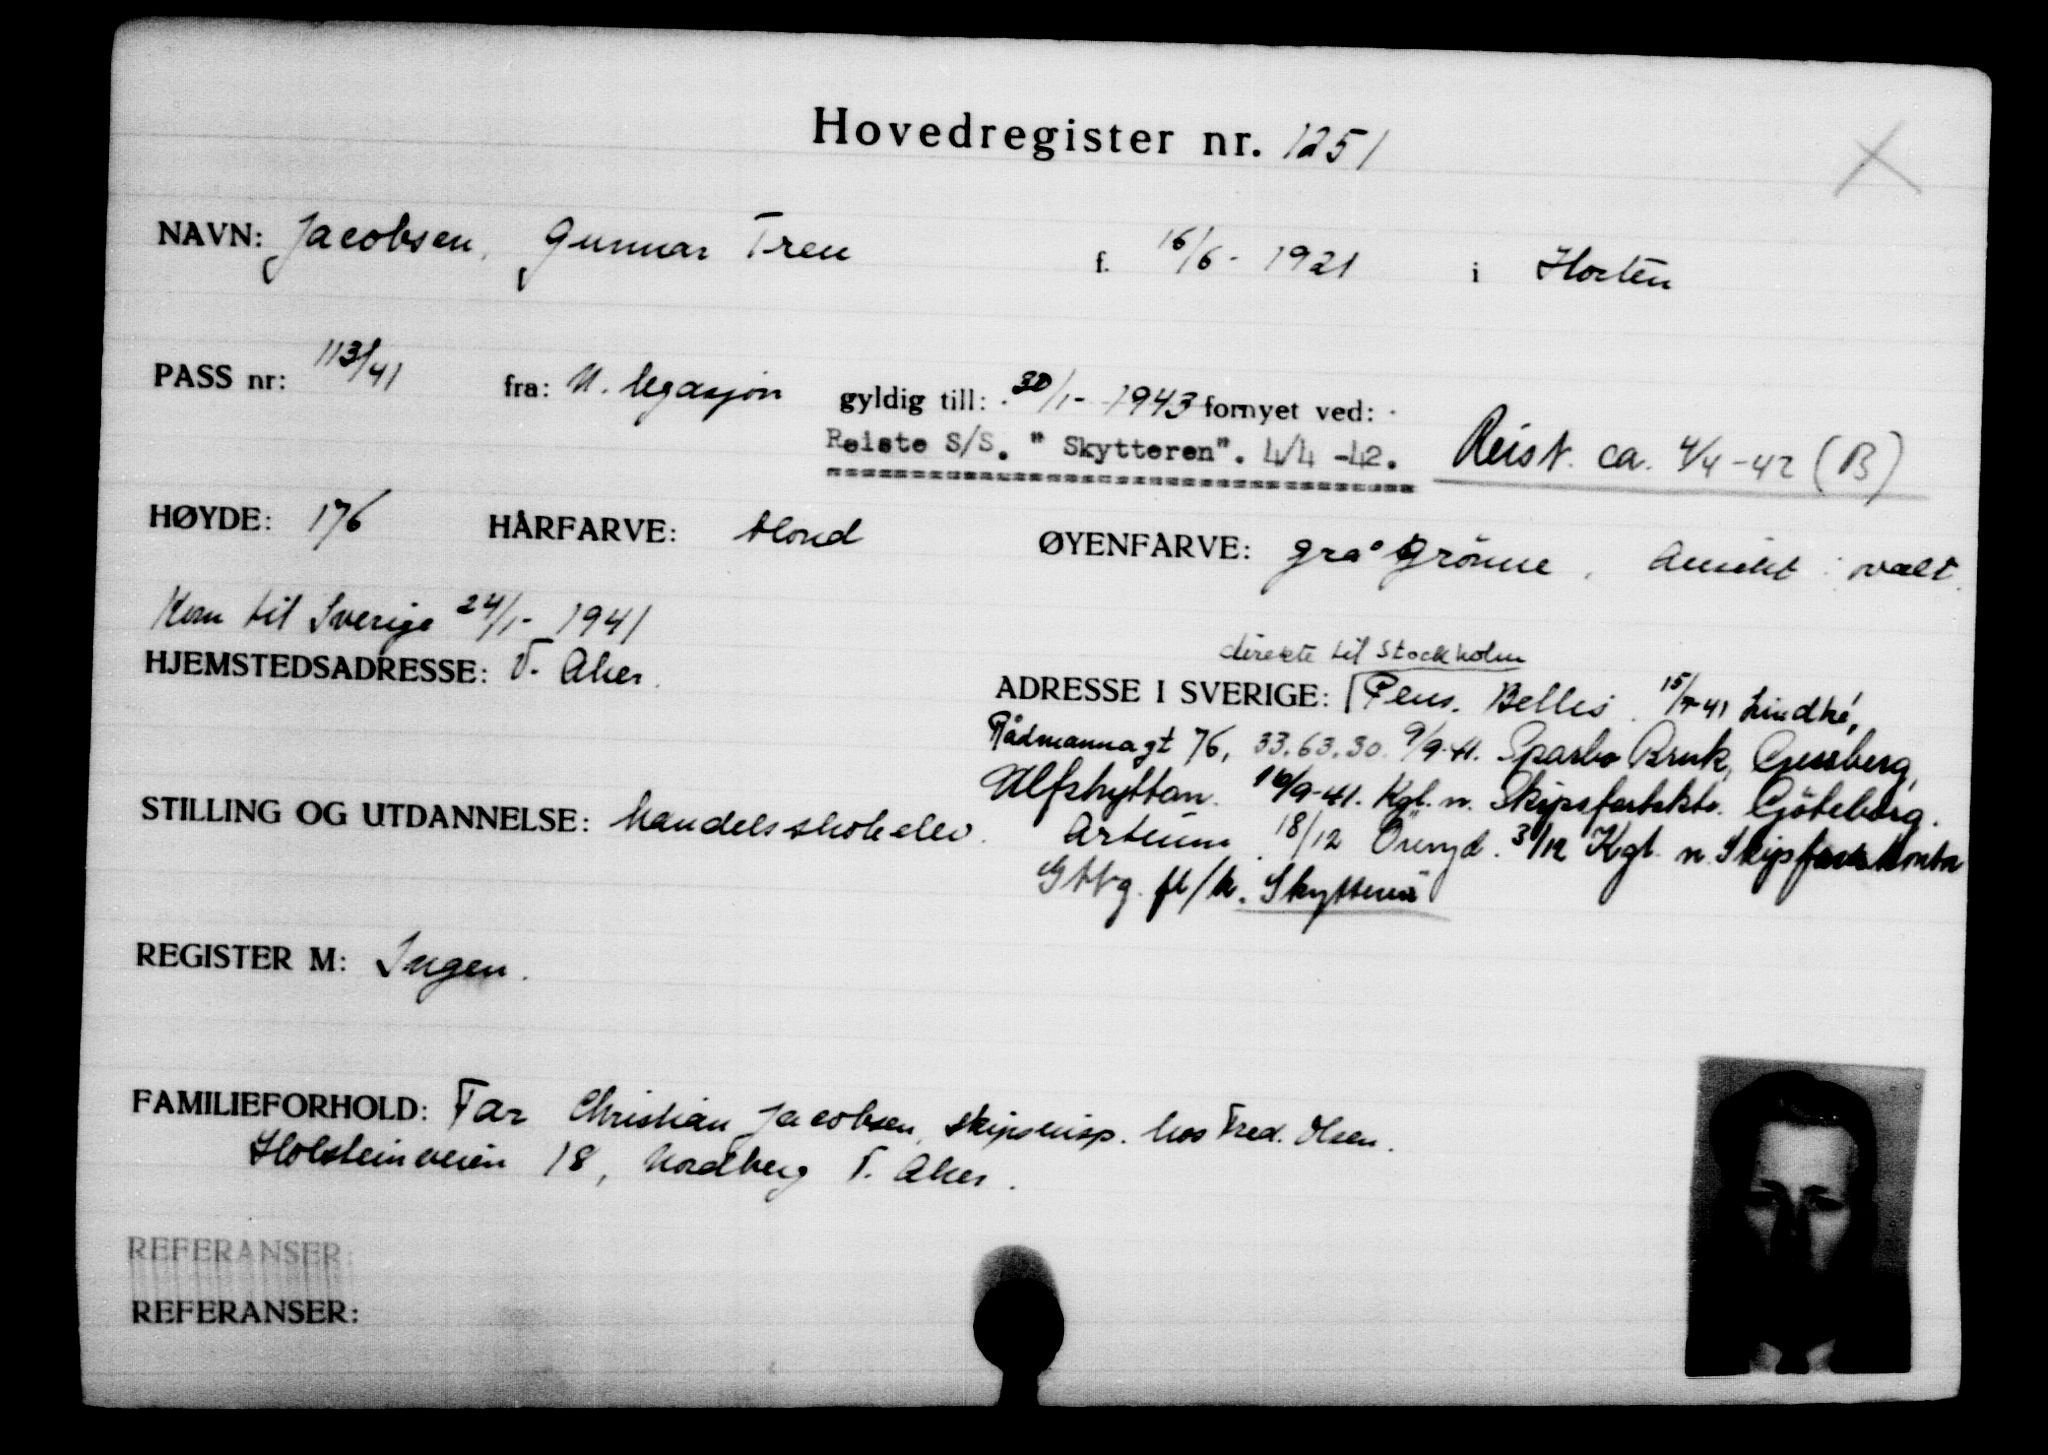 Hovedregister nr. 1251
NAVN: Jacobsen, Gunnar Treu f. 16/6 - 1921 i Horten
PASS nr: 113/41 fra: N. legasjon gyldig till: 30/1 - 1943 fornyet ved:
Reiste S/S. " Skytteren". 4/4 -42. Reist. ca. 4/4-42 (B)
HØYDE: 176 HÅRFARVE: blond ØYENFARVE: grå grönne, Ansikt: ovalt.
Kom til Sverige 24/1- 1941
HJEMSTEDSADRESSE: V. Aker.
direkte til Stockholm
ADRESSE I SVERIGE: Pens. Belles. 15/7-41 Lindhé,
Rådmannagt 76, 33.63.30. 9/9-41. Sparbo Bruk,
Ulfshyttan. 16/9-41. Kgl. n. Skipsfartskto. Göteborg.
STILLING OG UTDANNELSE: Handelsskoleelev.
Artium. 18/12 Öreryd. 3/12 Kgl. n. Skipsfartskontor
Gtbg. fl/k. Skytteren
REGISTER M: Ingen.
FAMILIEFORHOLD: Far Christian Jacobsen, skipsinsp. hos Fred. Olsen.
Holsteinveien 18, Nordberg V. Aker.
REFERANSER:
REFERANSER: